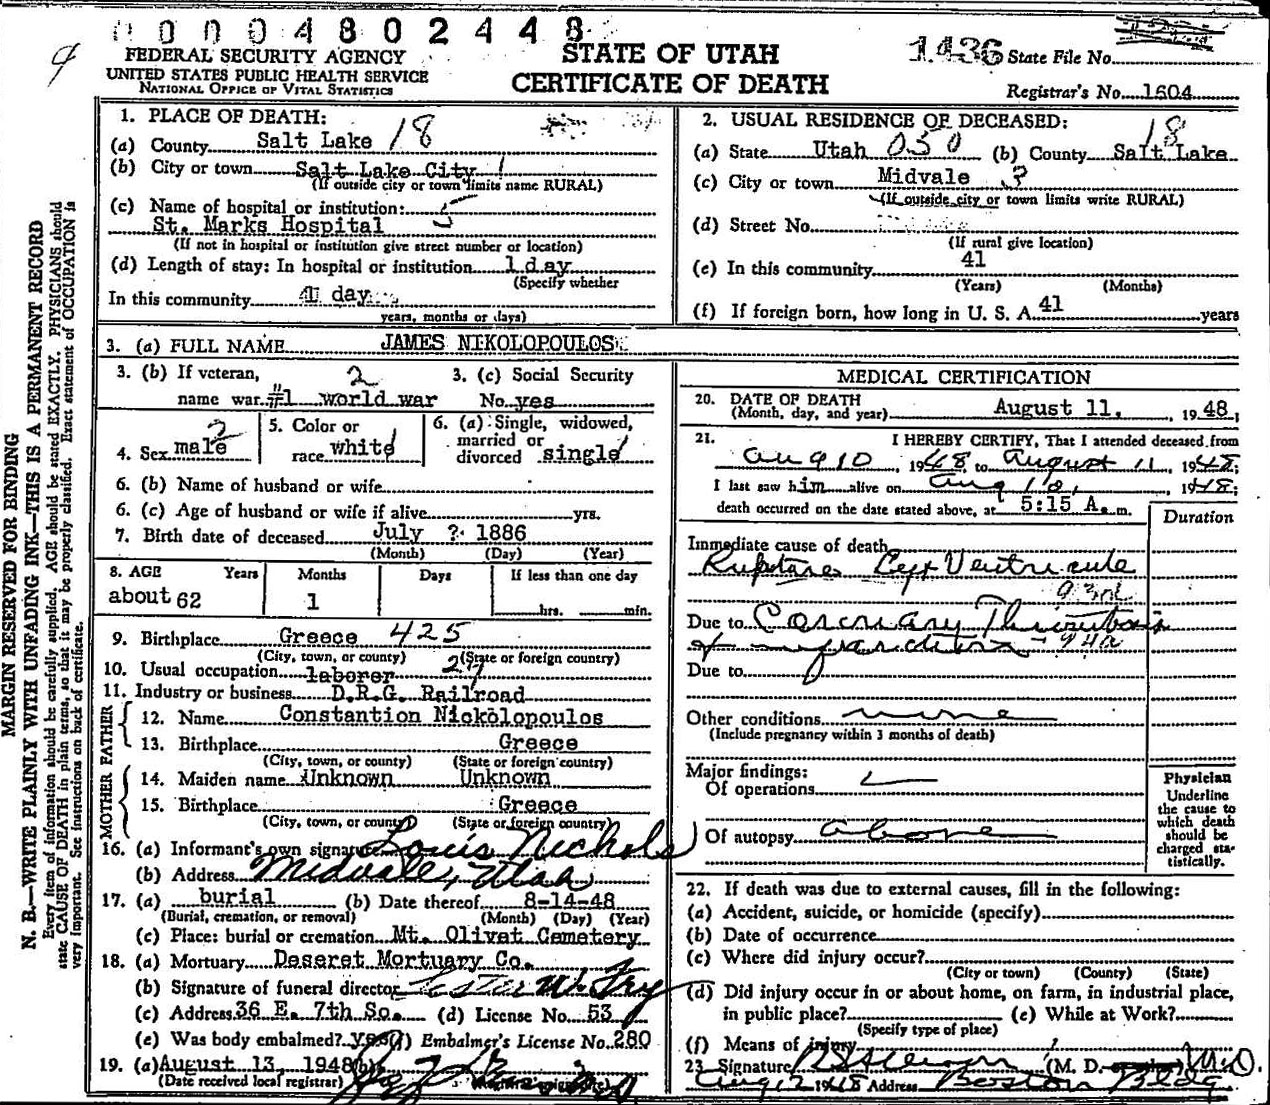 00004802448
FEDERAL SECURITY AGENCY
UNITED STATES PUBLIC HEALTH SERVICE
NATIONAL OFFICE OF VITAL STATISTICS
STATE OF UTAH
CERTIFICATE OF DEATH
1436 State File No.
Registrar's No. 1604
MARGIN RESERVED FOR BINDING
N. B.—WRITE PLAINLY WITH UNFADING INK—THIS IS A PERMANENT RECORD
Every item of information should be carefully supplied. AGE should be stated EXACTLY. PHYSICIANS should
state CAUSE OF DEATH in plain terms, so that it may be properly classified. Exact statement of OCCUPATION is
very important. See instructions on back of certificate.
1. PLACE OF DEATH:
(a) County Salt Lake 18
(b) City or town Salt Lake City 1
(If outside city or town limits name RURAL)
(c) Name of hospital or institution: 5
St. Marks Hospital
(If not in hospital or institution give street number or location)
(d) Length of stay: In hospital or institution 1 day
(Specify whether
In this community 41 day
years, months or days)
2. USUAL RESIDENCE OF DECEASED:
(a) State Utah 050 (b) County Salt Lake 18
(c) City or town Midvale
(If outside city or town limits write RURAL)
(d) Street No.
(If rural give location)
(e) In this community 41
(Years) (Months)
(f) If foreign born, how long in U. S. A. 41 years
3. (a) FULL NAME JAMES NIKOLOPOULOS
3. (b) If veteran, 2
name war #1 world war
3. (c) Social Security
No. yes
4. Sex male 2
5. Color or
race white 1
6. (a) Single, widowed,
married or
divorced single 1
6. (b) Name of husband or wife
6. (c) Age of husband or wife if alive yrs.
7. Birth date of deceased July ? 1886
(Month) (Day) (Year)
8. AGE Years Months Days If less than one day
about 62 1 hrs. min.
9. Birthplace Greece 425
(City, town, or county) (State or foreign country)
10. Usual occupation laborer
11. Industry or business D.R.G. Railroad
FATHER
12. Name Constantion Nickolopoulos
13. Birthplace Greece
(City, town, or county) (State or foreign country)
MOTHER
14. Maiden name Unknown Unknown
15. Birthplace Greece
(City, town, or county) (State or foreign country)
16. (a) Informant's own signature Louis Nichols
(b) Address Midvale, Utah
17. (a) burial (b) Date thereof 8-14-48
(Burial, cremation, or removal) (Month) (Day) (Year)
(c) Place: burial or cremation Mt. Olivet Cemetery
18. (a) Mortuary Deseret Mortuary Co.
(b) Signature of funeral director Lester W. Fry
(c) Address 36 E. 7th So. (d) License No. 53
(e) Was body embalmed? yes (f) Embalmer's License No. 280
19. (a) August 13, 1948 (b)
(Date received local registrar)
MEDICAL CERTIFICATION
20. DATE OF DEATH
(Month, day, and year) August 11, 1948;
21. I HEREBY CERTIFY, That I attended deceased from
Aug 10, 1948, to August 11, 1948;
I last saw him alive on Aug 10, 1948;
death occurred on the date stated above, at 5:15 A. m.
Duration
Immediate cause of death
Rupture Left Ventricule
Due to Coronary Thrombosis
Due to
Other conditions none
(Include pregnancy within 3 months of death)
Major findings:
Of operations
Of autopsy above
Physician
Underline
the cause to
which death
should be
charged sta-
tistically.
22. If death was due to external causes, fill in the following:
(a) Accident, suicide, or homicide (specify)
(b) Date of occurrence
(c) Where did injury occur?
(City or town) (County) (State)
(d) Did injury occur in or about home, on farm, in industrial place,
in public place? (e) While at Work?
(Specify type of place)
(f) Means of injury
23. Signature (M. D. M.D.
Aug 12 1948 Address Boston Bldg